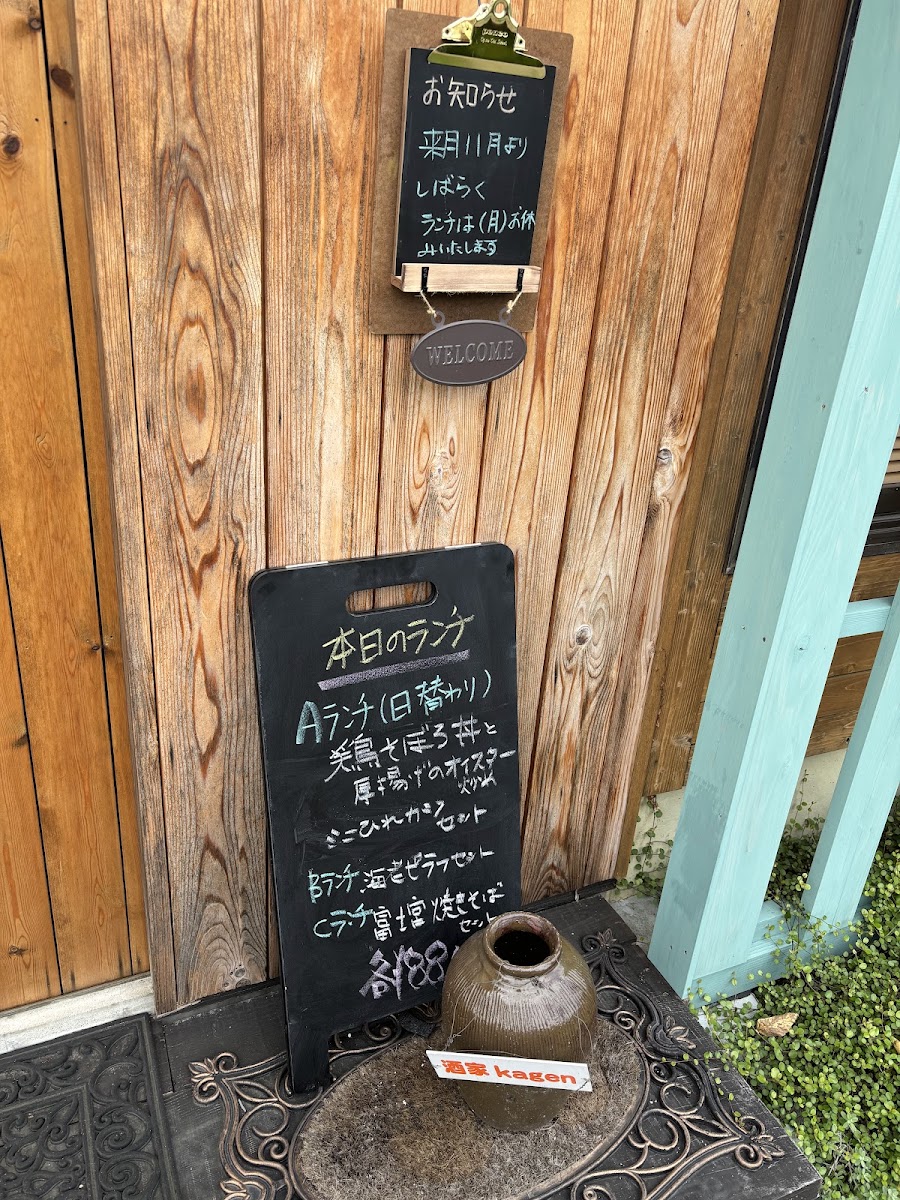 penco
お知らせ
来月11月より
しばらく
ランチは(月)お休
みいたします
WELCOME
本日のランチ
Aランチ(日替わり)
鶏そぼろ丼と
厚揚げのオイスター
炒め
ミニひれカツ
セット
Bランチ 海老ピラフセット
Cランチ 富士宮焼きそば
セット
各¥88
酒家 kagen